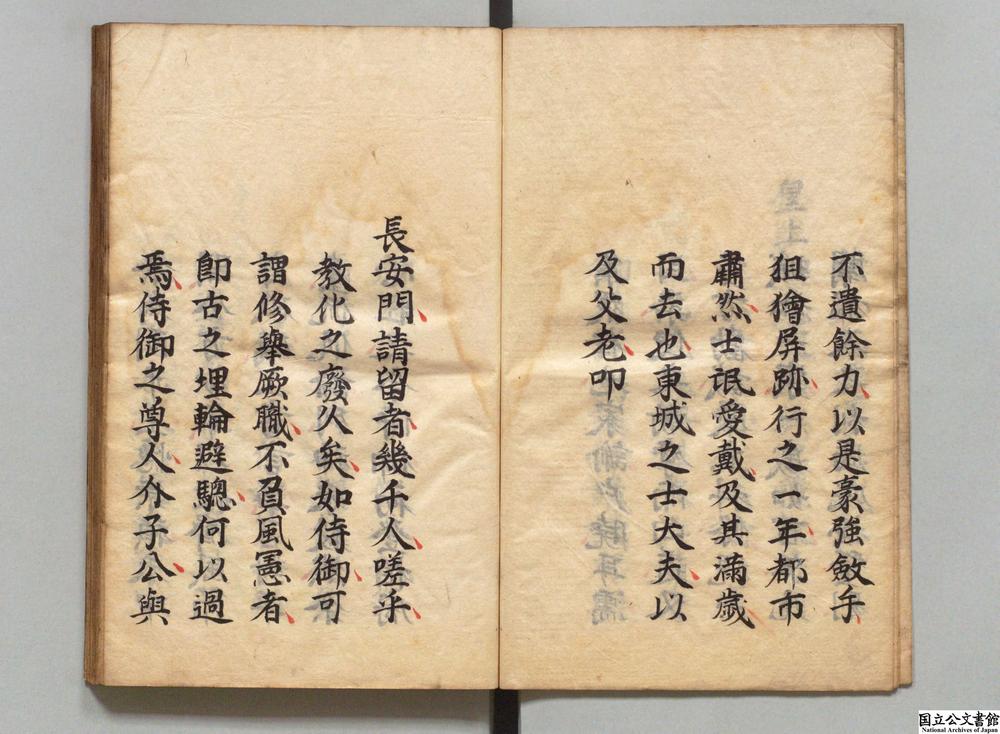 不遺餘力以是豪強斂手
狙獪屏跡行之一年都市
肅然士氓愛戴及其滿歲
而去也東城之士大夫以
及父老叩
長安門請留者幾千人嗟乎
教化之廢久矣如侍御可
謂修舉厥職不負風憲者
即古之埋輪避驄何以過
焉侍御之尊人介子公與
国立公文書館
National Archives of Japan